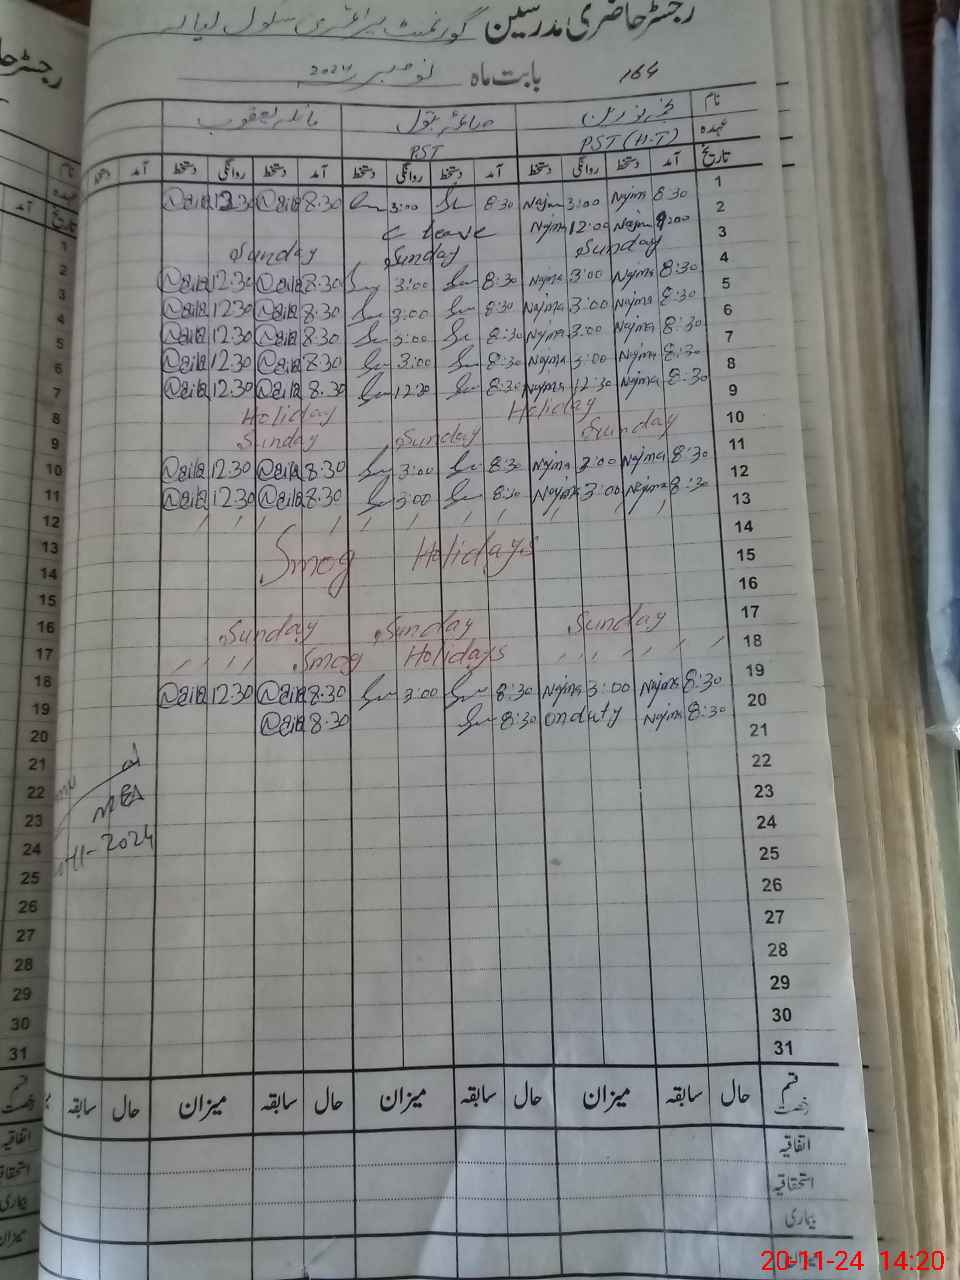 رجسٹر حاضری مدرسین گورنمنٹ پرائمری سکول
164 بابت ماہ نومبر 2024
نام
عہدہ PST (H-T) PST
تاریخ آمد دستخط روانگی دستخط آمد دستخط روانگی دستخط آمد دستخط روانگی دستخط آمد دستخط
1 8:30 Najma 3:00 Najma 8:30 3:00 8:30 Naila 12:30 Naila
2 9:00 Najma 12:00 Najma C leave
3 Sunday Sunday Sunday
4 8:30 Najma 3:00 Najma 8:30 3:00 8:30 Naila 12:30 Naila
5 8:30 Najma 3:00 Najma 8:30 3:00 8:30 Naila 12:30 Naila
6 8:30 Najma 3:00 Najma 8:30 3:00 8:30 Naila 12:30 Naila
7 8:30 Najma 3:00 Najma 8:30 3:00 8:30 Naila 12:30 Naila
8 8:30 Najma 12:30 Najma 8:30 12:30 8:30 Naila 12:30 Naila
9 Holiday Holiday
10 Sunday Sunday Sunday
11 8:30 Najma 3:00 Najma 8:30 3:00 8:30 Naila 12:30 Naila
12 8:30 Najma 3:00 Najma 8:30 3:00 8:30 Naila 12:30 Naila
13
14
15 Smog Holidays
16
17 Sunday Sunday Sunday
18 Smog Holidays
19 8:30 Najma 3:00 Najma 8:30 3:00 8:30 Naila 12:30 Naila
20 8:30 Najma on duty 8:30 8:30 Naila
21
22
23 MEA
24 11-2024
25
26
27
28
29
30
31
قسم رخصت حال سابقہ میزان حال سابقہ میزان حال سابقہ میزان حال سابقہ
اتفاقیہ
استحقاقیہ
بیماری
میزان
رجسٹر
نام
عہدہ
تاریخ
آمد
1
2
3
4
5
6
7
8
9
10
11
12
13
14
15
16
17
18
19
20
21
22
23
24
25
26
27
28
29
30
31
قسم
رخصت
اتفاقیہ
بیماری
میزان
20-11-24 14:20